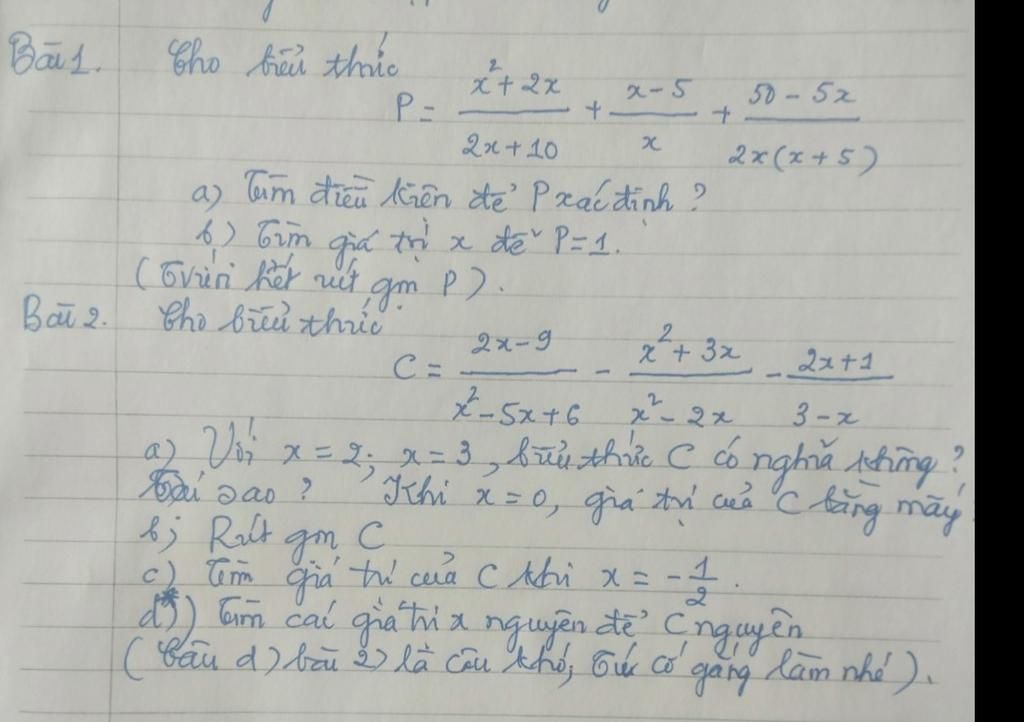 Bài 1. Cho biểu thức
P = \frac{x^2 + 2x}{2x + 10} + \frac{x - 5}{x} + \frac{50 - 5x}{2x(x + 5)}
a) Tìm điều kiện để P xác định?
b) Tìm giá trị x để P = 1.
(Trước hết rút gọn P).
Bài 2. Cho biểu thức
C = \frac{2x - 9}{x^2 - 5x + 6} - \frac{x^2 + 3x}{x^2 - 2x} - \frac{2x + 1}{3 - x}
a) Với x = 2; x = 3, biểu thức C có nghĩa không?
Tại sao? Khi x = 0, giá trị của C bằng mấy
b; Rút gọn C
c) Tìm giá trị của C khi x = -\frac{1}{2}.
d*)) Tìm các giá trị x nguyên để C nguyên
(Câu d) bài 2) là câu khó, cố gắng làm nhé).